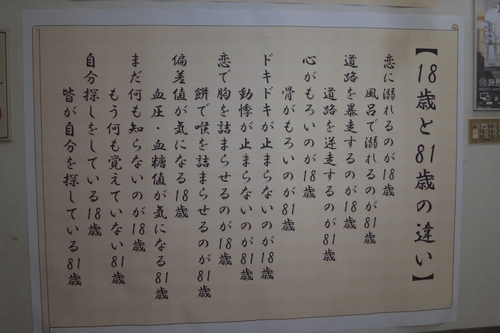 【18歳と81歳の違い】
恋に溺れるのが18歳
風呂で溺れるのが81歳
道路を暴走するのが18歳
道路を逆走するのが81歳
心がもろいのが18歳
骨がもろいのが81歳
ドキドキが止まらないのが18歳
動悸が止まらないのが81歳
恋で胸を詰まらせるのが18歳
餅で喉を詰まらせるのが81歳
偏差値が気になる18歳
血圧・血糖値が気になる81歳
まだ何も知らないのが18歳
もう何も覚えていない81歳
自分探しをしている18歳
皆が自分を探している81歳